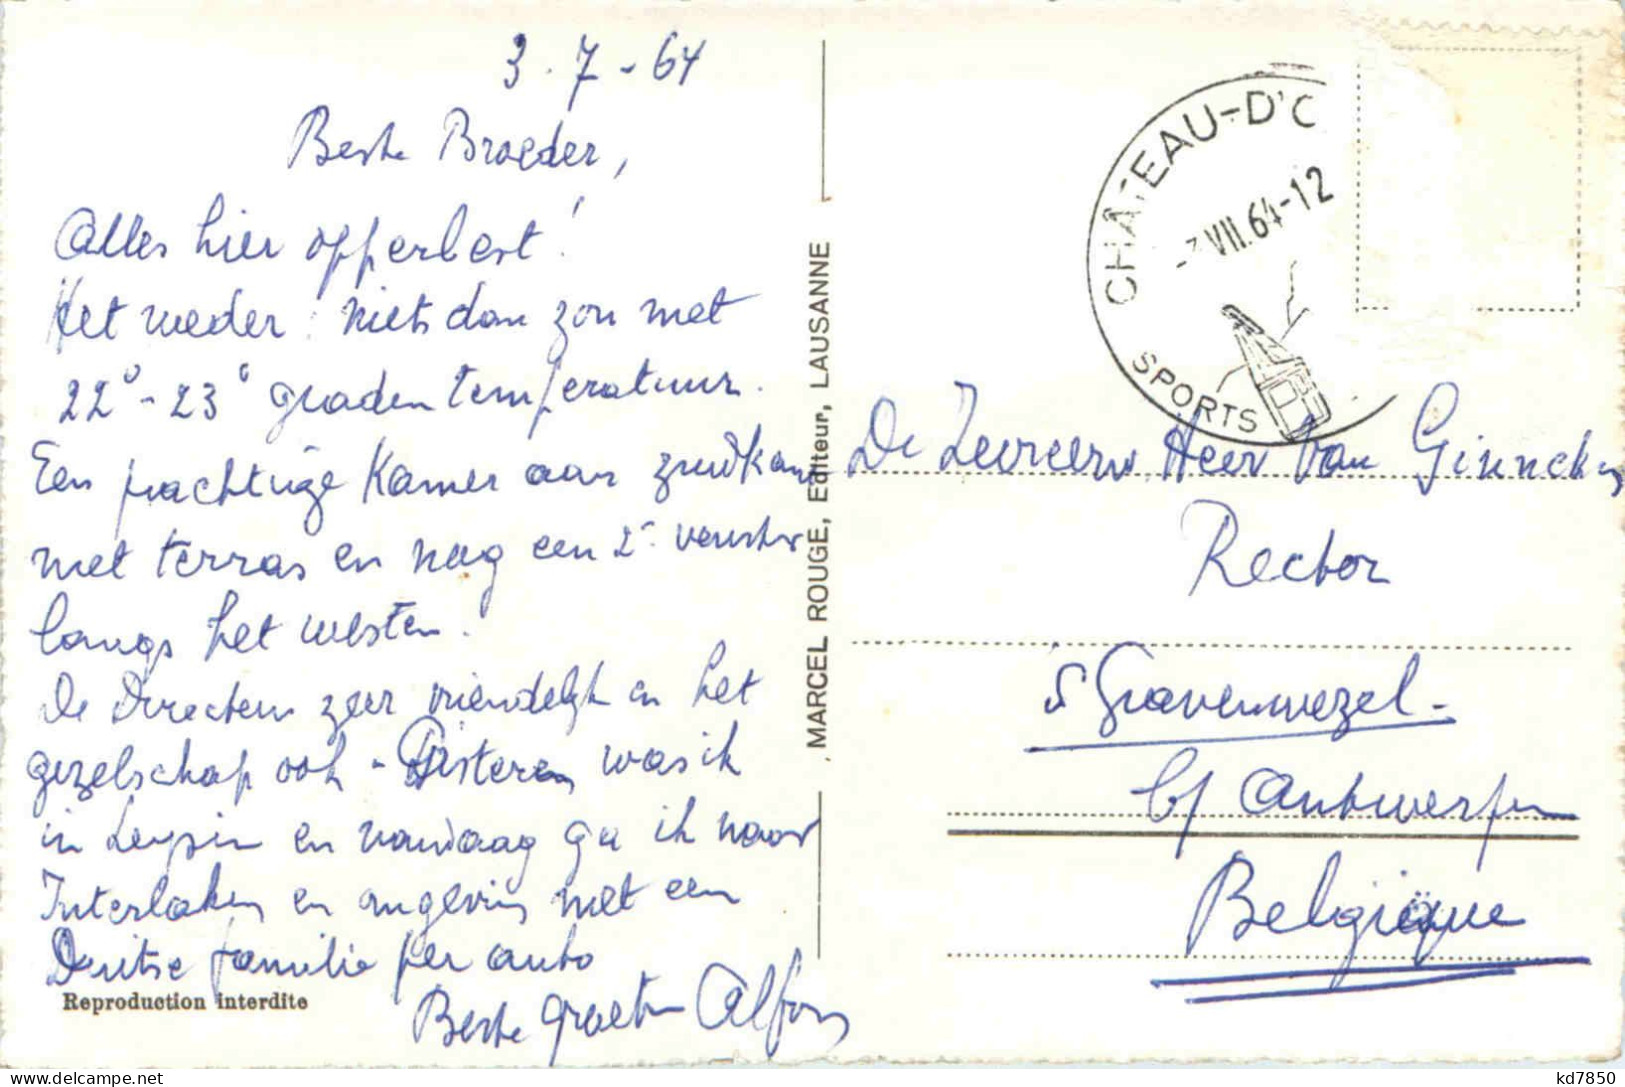 3.7-64
Beste Broeder,
Alles hier opperbest!
Het weder: niets dan zon met
22° - 23° graden temperatuur.
Een prachtige Kamer aan zuidkant
met terras en nog een 2e venster
langs het westen.
De Directeur zeer vriendelijk en het
gezelschap ook - Gisteren was ik
in Leysin en vandaag ga ik naar
Interlaken en omgeving met een
Duitse familie per auto
Beste groeten Alfons
Reproduction interdite
MARCEL ROUGE, Editeur, LAUSANNE
CHÂTEAU-D'O
-3.VII.64-12
SPORTS
De Zeereerw Heer Van Ginneken
Rector
's Gravenwezel-
bij Antwerpen
Belgique
kd7850